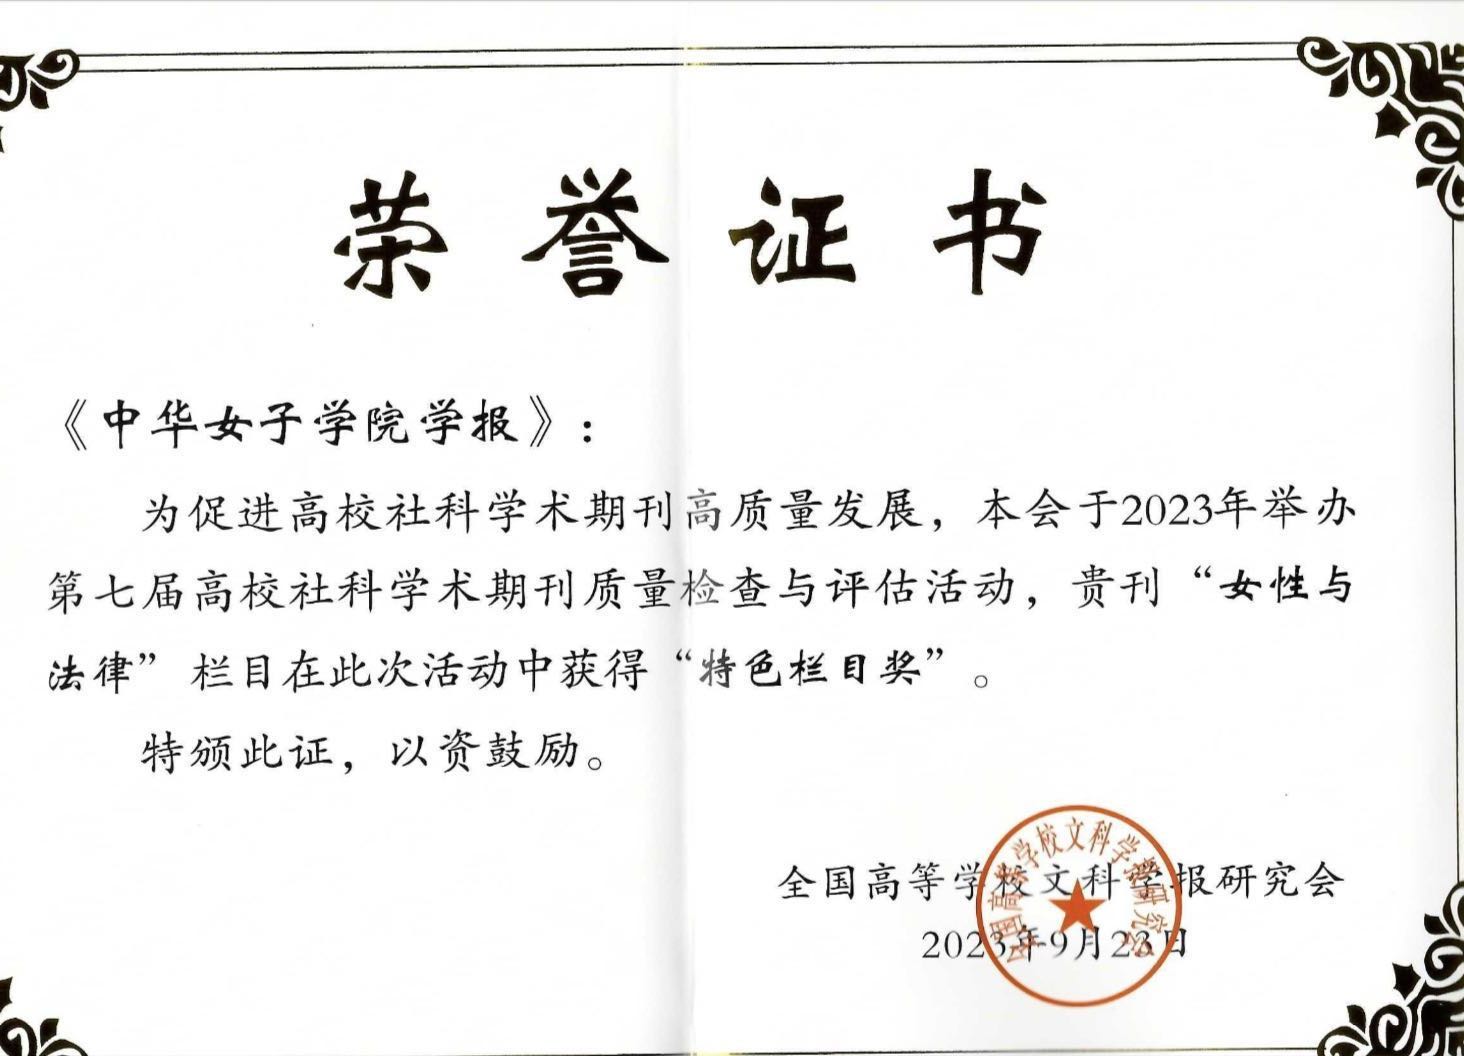 荣誉证书
《中华女子学院学报》：
为促进高校社科学术期刊高质量发展，本会于2023年举办
第七届高校社科学术期刊质量检查与评估活动，贵刊“女性与
法律”栏目在此次活动中获得“特色栏目奖”。
特颁此证，以资鼓励。
全国高等学校文科学报研究会
2023年9月23日
全国高等学校文科学报研究会